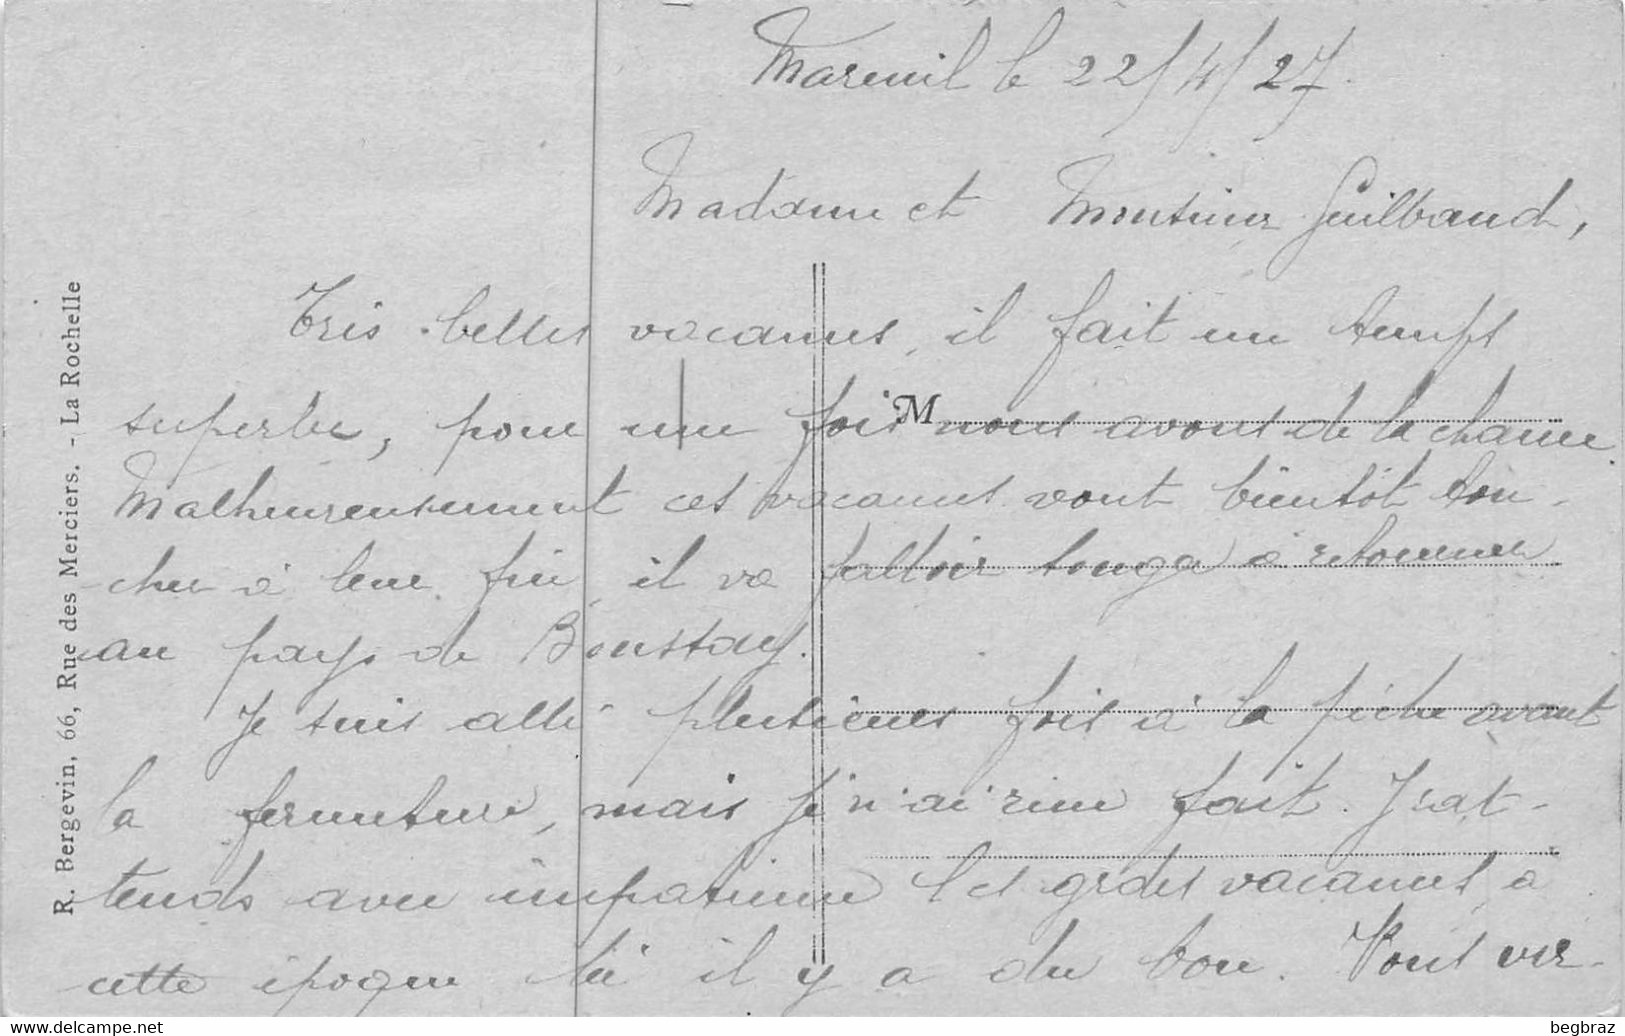 Mareuil le 22/4/27.
Madame et Monsieur Guilbaud,
Très belles vacances, il fait un temps
superbe, pour une fois nous avons de la chance.
M
Malheureusement ces vacances vont bientôt tou-
cher à leur fin, il va falloir songer à retourner
au pays de
Je suis allé plusieurs fois à la pêche avant
la fermeture, mais je n'ai rien fait. J'at-
tends avec impatience les grdes vacances, à
cette époque là il y a du bon. Vous ver-
R. Bergevin, 66, Rue des Merciers. - La Rochelle
www.delcampe.net
begbraz